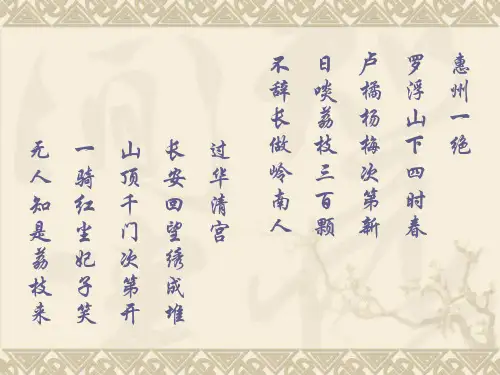 惠州一绝
罗浮山下四时春
卢橘杨梅次第新
日啖荔枝三百颗
不辞长做岭南人
过华清宫
长安回望绣成堆
山顶千门次第开
一骑红尘妃子笑
无人知是荔枝来